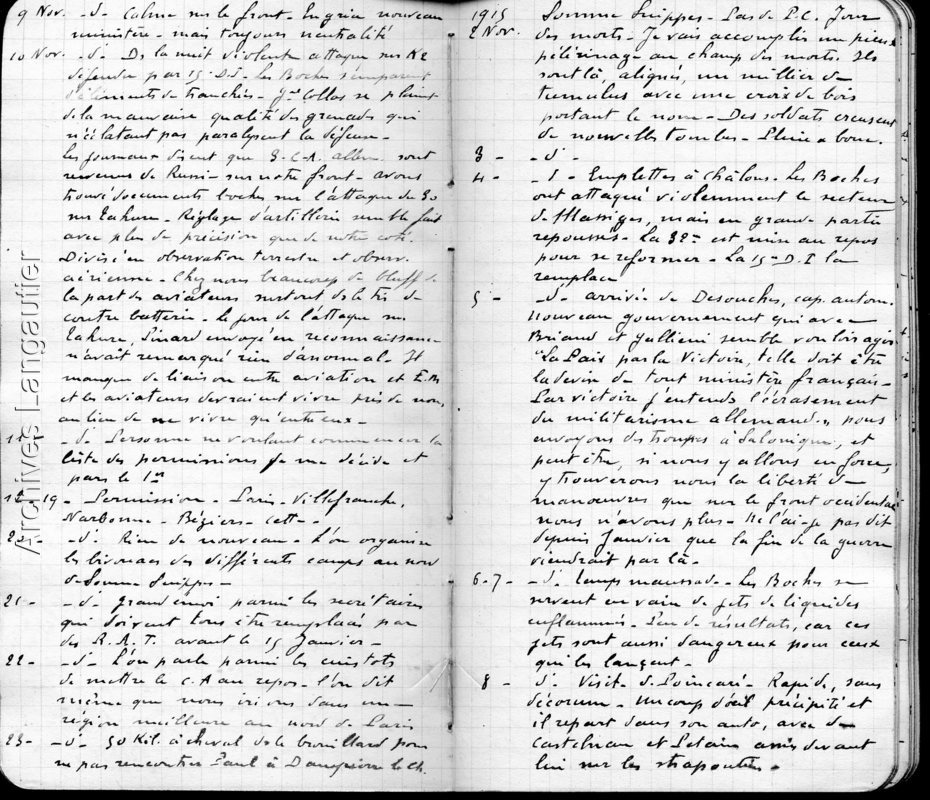 9 Nov. -d- Calme sur le front. En grèce nouveau
ministère - mais toujours neutralité
10 Nov. -d- Ds la nuit violente attaque sur K2
défendu par 15 D.I. Les Boches s'emparent
d'éléments de tranchées - Gal Collas se plaint
de la mauvaise qualité des grenades qui
n'éclatant pas paralysent la défense -
Les journaux disent que 3 C.A. allem. sont
revenus de Russie - sur notre front - avons
trouvé documents boches sur l'attaque du 30
sur Tahure - Réglage d'artillerie semble fait
avec plus de précision que de notre coté.
Divisé en observation terrestre et observ.
aérienne - Chez nous beaucoup de bluff de
la part des aviateurs surtout ds le tir de
contre batterie - le jour de l'attaque sur
Tahure, envoyé en reconnaissance
n'avait remarqué rien d'anormal - Il
manque de liaison entre aviation et E.M
et les aviateurs devraient vivre près de nous,
au lieu de ne vivre qu'entre eux -
11 -d- Personne ne voulant commencer la
liste des permissions je me décide et
pars le 1er
12-19 - Permission - Paris - Villefranche,
Narbonne - Béziers - Cette -
20 - -d- Rien de nouveau - L'on organise
les bivouacs des différents camps au nord
de Somme Suippes -
21 - -d- grand émoi parmi les secrétaires
qui doivent tous être remplacés par
des R.A.T. avant le 15 Janvier -
22 - -d- L'on parle parmi les cuistots
de mettre le C.A au repos - l'on dit
même que nous irions dans une
région meilleure au nord de Paris
23 - -d- 50 Kil. à cheval ds le brouillard pour
ne pas rencontrer Paul à Dampierre le Ch.
1915 Somme Suippes - Pas de P.C. Jour
2 Nov. des morts - Je vais accomplir un pieux
pélérinage au champ des morts. Ils
sont là, alignés, un millier de
tumulus avec une croix de bois
portant le nom - Des soldats creusent
de nouvelles tombes - Pluie & boue.
3 - -d-
4 - -d- Emplettes à Châlons. Les Boches
ont attaqué violemment le secteur
de Massiges, mais en grande partie
repoussés - La 32e est mise au repos
pour se reformer - La 15e D.I la
remplace
5 - -d- arrivée de Desouches, cap. autom.
Nouveau gouvernement qui avec
Briand et Gallieni semble vouloir agir
"La Paix par la Victoire, telle doit être
la devise de tout ministère français -
Par victoire j'entends l'écrasement
du militarisme allemand." nous
envoyons des troupes à Salonique, et
peut être, si nous y allons en force,
y trouverons nous la liberté de
manoeuvres que sur le front occidental
nous n'avons plus - Ne l'ai-je pas dit
depuis Janvier que la fin de la guerre
viendrait par là -
6-7- -d- Temps maussade - Les Boches se
servent en vain de jets de liquides
enflammés - Peu de résultats, car ces
jets sont aussi dangereux pour ceux
qui les lançent -
8 - -d- Visite de Poincaré - Rapide, sans
décorum - Un coup d'oeil précipité et
il repart dans son auto, avec de
Castelnau et Petain assis devant
lui sur les strapontins -
Archives Langautier